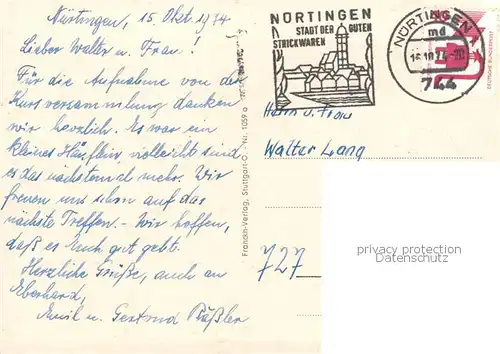 Nürtingen, 15. Okt. 1974
Lieber Walter u. Frau!
Für die Aufnahme von der
Kursversammlung danken
wir herzlich. Es war ein
kleines Häuflein, vielleicht sind
es das nächstemal mehr. Wir
freuen uns schon auf das
nächste Treffen. - Wir hoffen,
daß es Euch gut geht.
Herzliche Grüße, auch an
Eberhard,
Emil u. Gertrud Räßler
Franckh-Verlag, Stuttgart-O. · Nr. 1059 a
NÜRTINGEN
STADT DER GUTEN
STRICKWAREN
NÜRTINGEN
md
16.10.74
744
DEUTSCHE BUNDESPOST
Herrn u. Frau
Walter Lang
727
privacy protection
Datenschutz